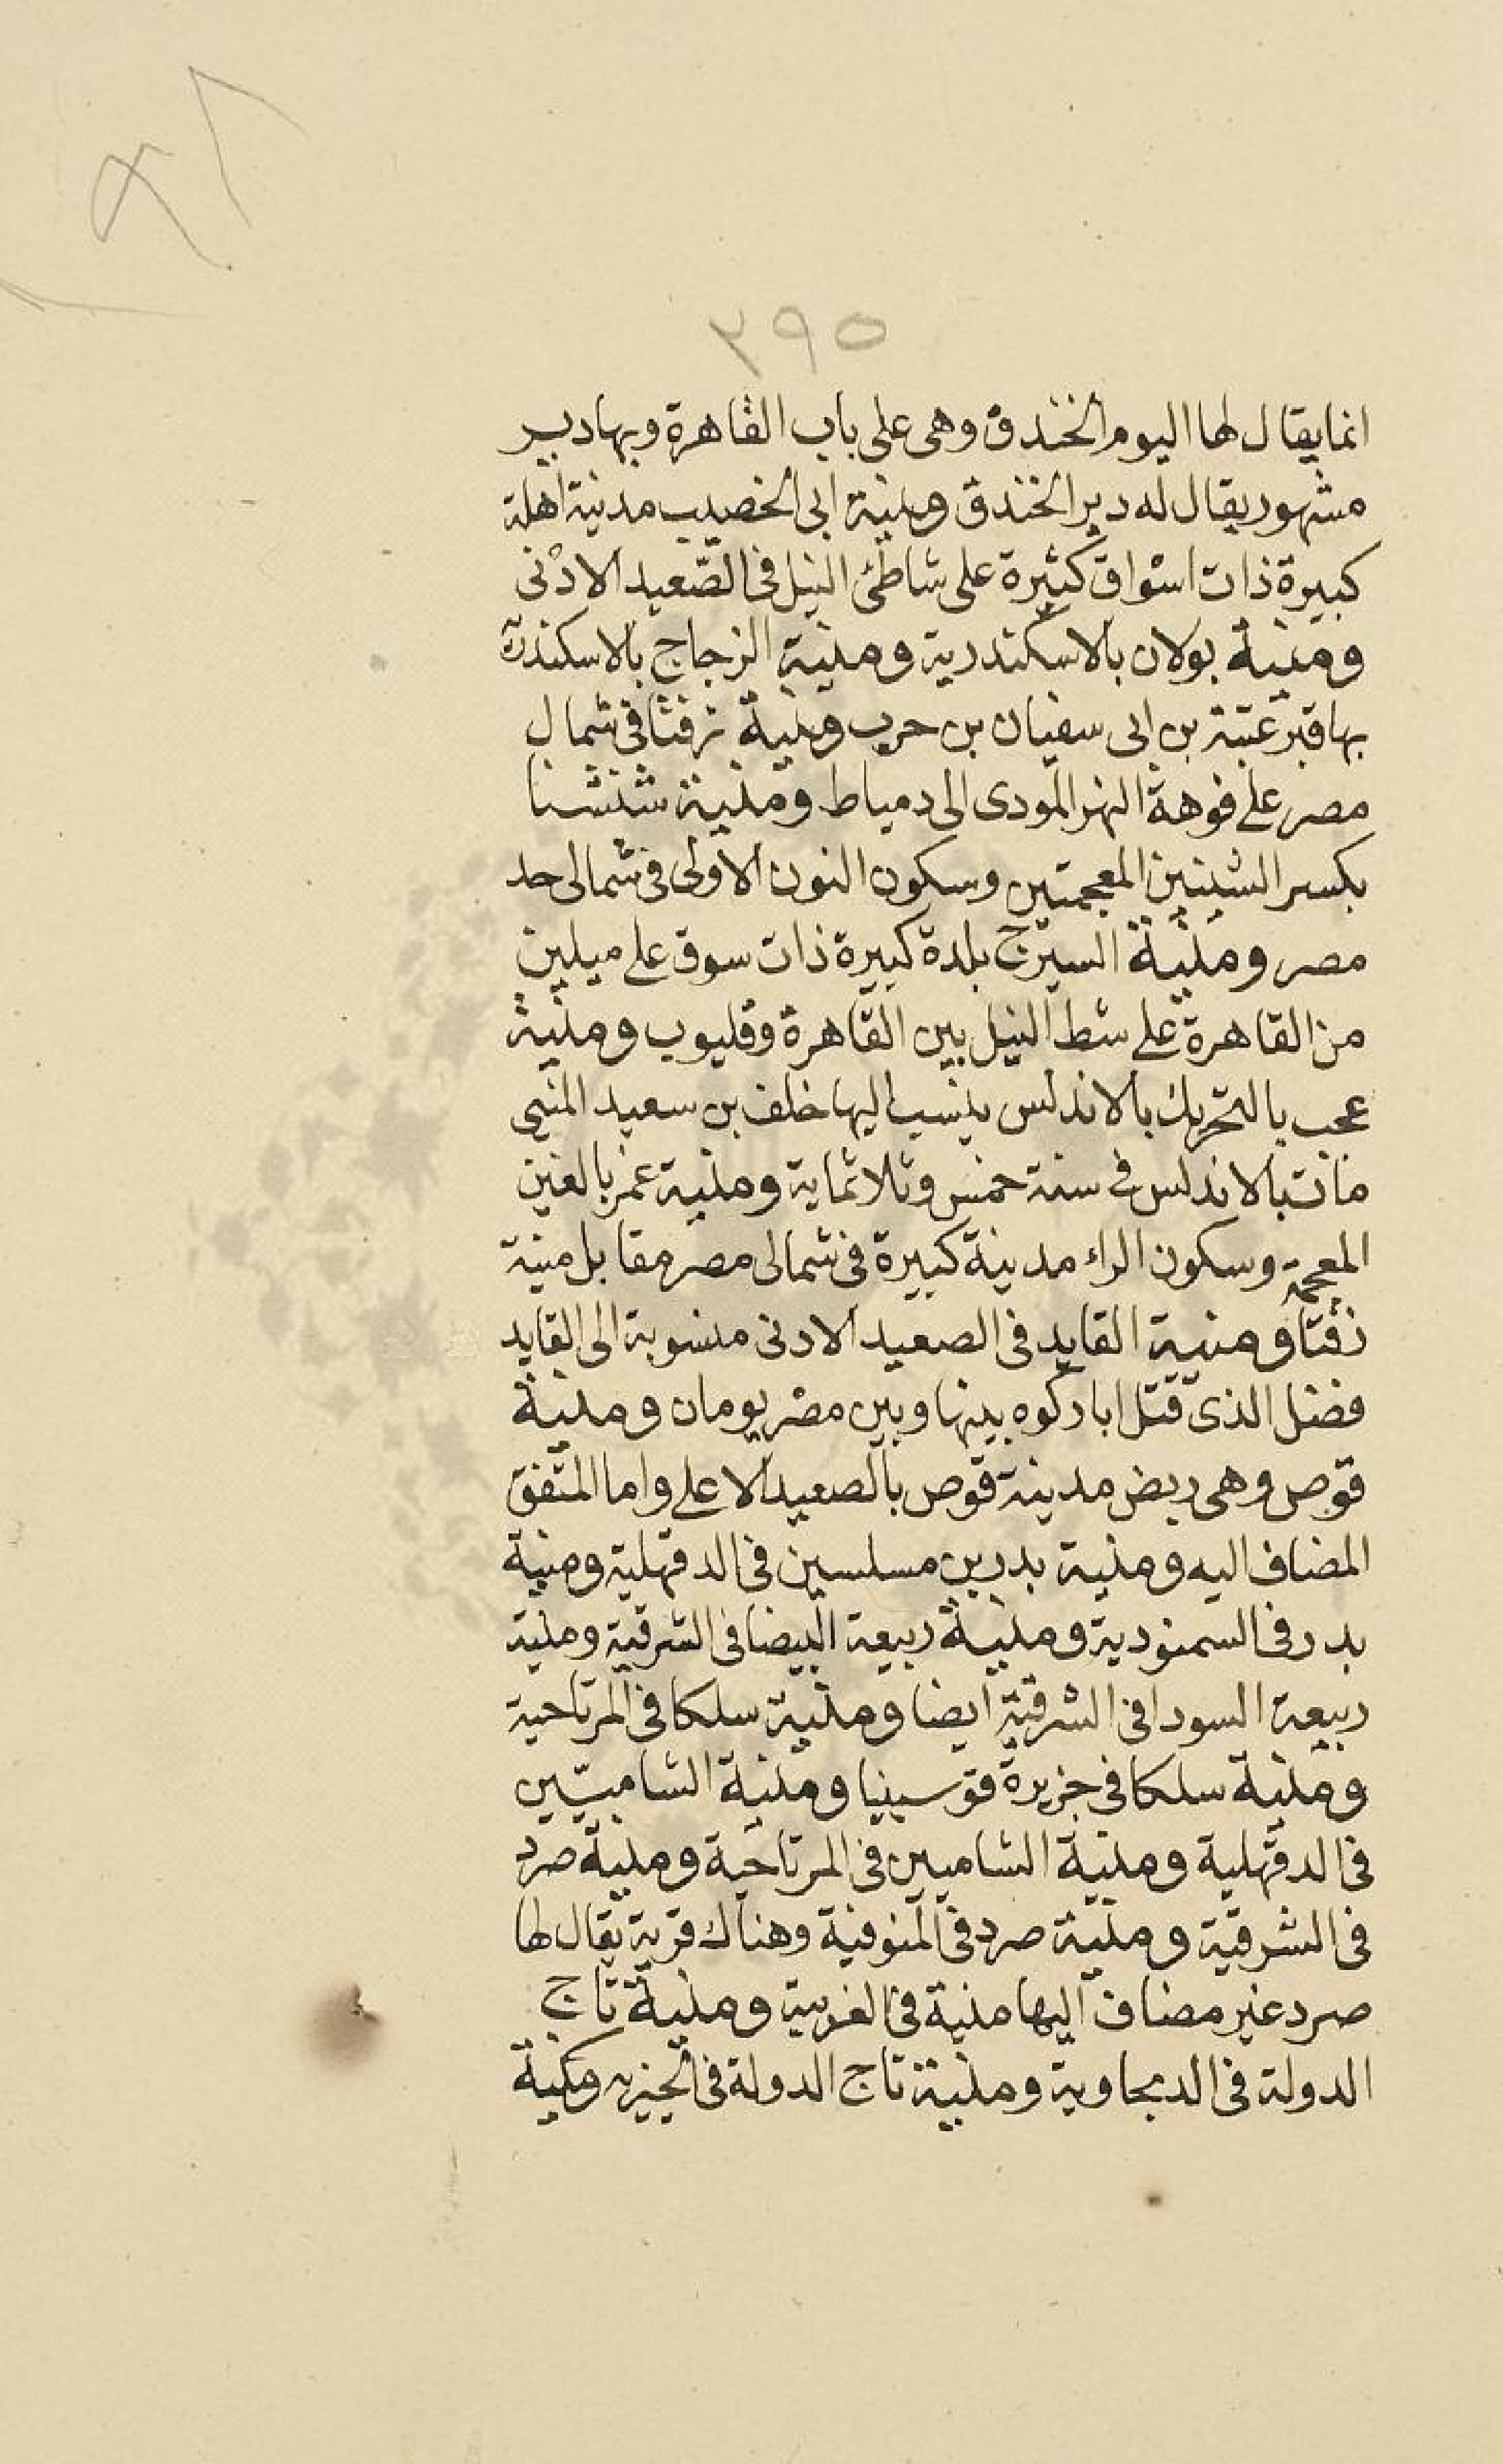 ٣٩٥
انما يقال لها اليوم الخندق وهى على باب القاهرة وبها دير
مشهور يقال له دير الخندق ومنية ابى الخصيب مدينة اهلة
كبيرة ذات اسواق كثيرة على شاطئ النيل فى الصّعيد الادنى
ومنية بولان بالاسكندرية ومنية الزجاج بالاسكندرية
بها قبر عتبة بن ابى سفيان بن حرب ومنية زفتا فى شمال
مصر على فوهة النهر المودى الى دمياط ومنية شنشنا
بكسر الشينين المعجمتين وسكون النون الاولى فى شمالى حد
مصر ومنية السيرج بلدة كبيرة ذات سوق على ميلين
من القاهرة على شط النيل بين القاهرة وقليوب ومنية
عجب بالتحريك بالاندلس ينسب اليها خلف بن سعيد المنيى
مات بالاندلس فى سنة خمس وثلاثماية ومنية غمر بالغين
المعجمة وسكون الراء مدينة كبيرة فى شمالى مصر مقابل منية
زفتا ومنية القايد فى الصعيد الادنى منسوبة الى القايد
فضل الذى قتل ابا ركوه بينها وبين مصر يومان ومنية
قوص وهى ربض مدينة قوص بالصعيد الاعلى واما المتفق
المضاف اليه ومنية بدر بن مسلسين فى الدقهلية ومنية
بدر فى السمنودية ومنية ربيعة البيضا فى الشرقية ومنية
ربيعة السودا فى الشرقية ايضا ومنية سلكا فى المرتاحية
ومنية سلكا فى جزيرة قوسينيا ومنية الشاميّين
فى الدقهلية ومنية الشاميين فى المرتاحية ومنية صرد
فى الشرقية ومنية صرد فى المنوفية وهناك قرية يقال لها
صرد غير مضاف اليها منية فى الغربية ومنية تاج
الدولة فى الدنجاوية ومنية تاج الدولة فى الجيزيه ومنية